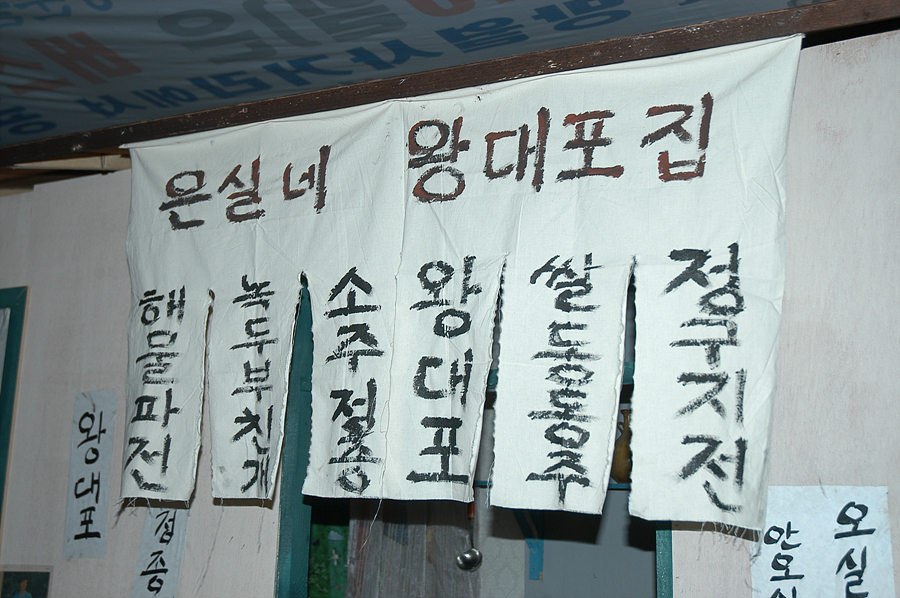 은실네 왕대포집
해물파전
녹두부친개
소주정종
왕대포
쌀동동주
정구지전
왕대포
정종
오실
안오